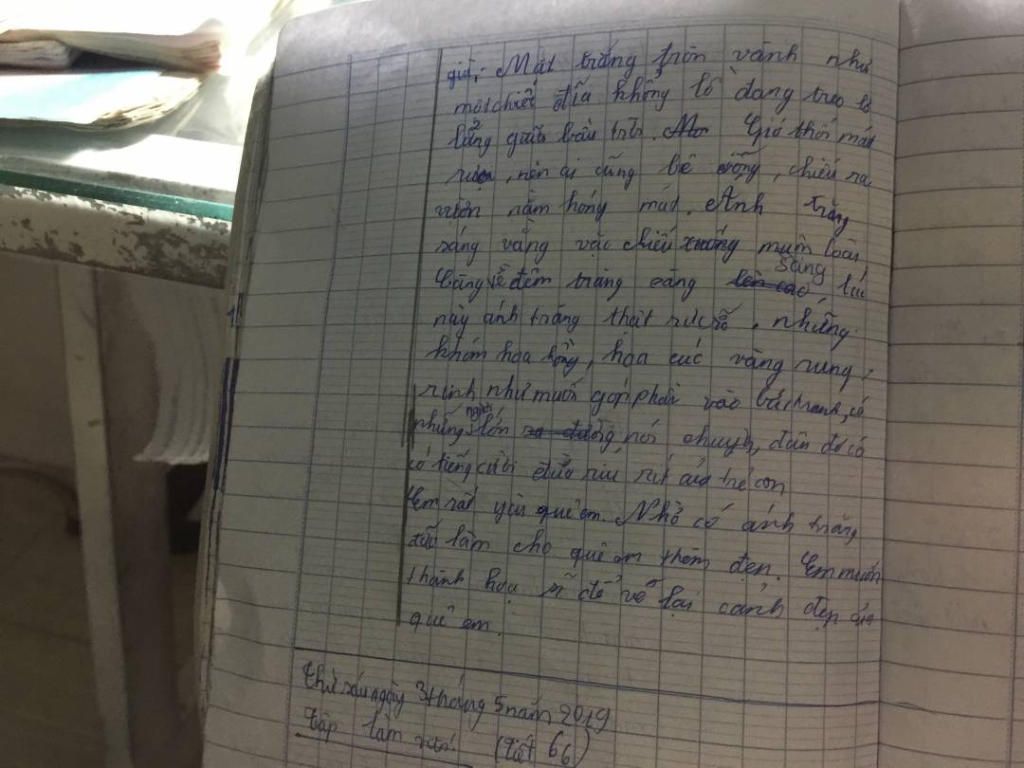 giữ. Mặt trăng tròn vành như
một chiếc đĩa khổng lồ đang treo lơ
lửng giữa bầu trời. Gió thổi mát
rượi, nên ai cũng bê chõng, chiếu ra
vườn nằm hóng mát. Ánh trăng
sáng vằng vặc chiếu xuống muôn loài.
Càng về đêm trăng càng sáng, lúc
này ánh trăng thật rực rỡ, những
khóm hoa hồng, hoa cúc vàng rung
rinh như muốn góp phần vào bức tranh, có
những người lớn nói chuyện, đâu đó có
có tiếng cười đùa ríu rít của trẻ con
Em rất yêu quê em. Nhờ có ánh trăng
đã làm cho quê em thêm đẹp. Em muốn
thành hoạ sĩ để vẽ lại cảnh đẹp của
quê em.
Thứ sáu ngày 3 tháng 5 năm 2019
Tập làm văn (Tiết 66)